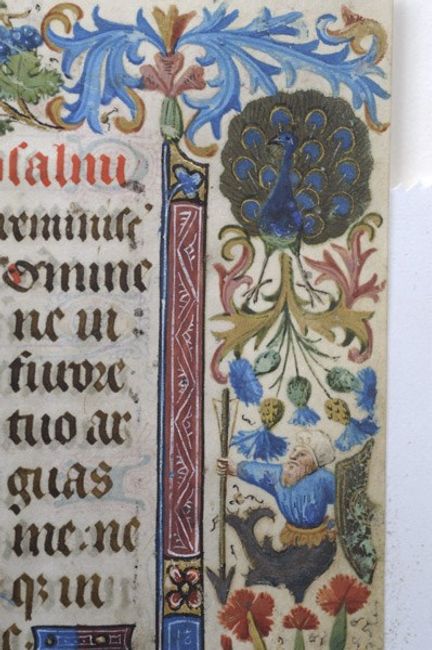 salmi
reminisc'
Domine
ne in
furore
tuo ar
guas
me: ne
qꝫ in